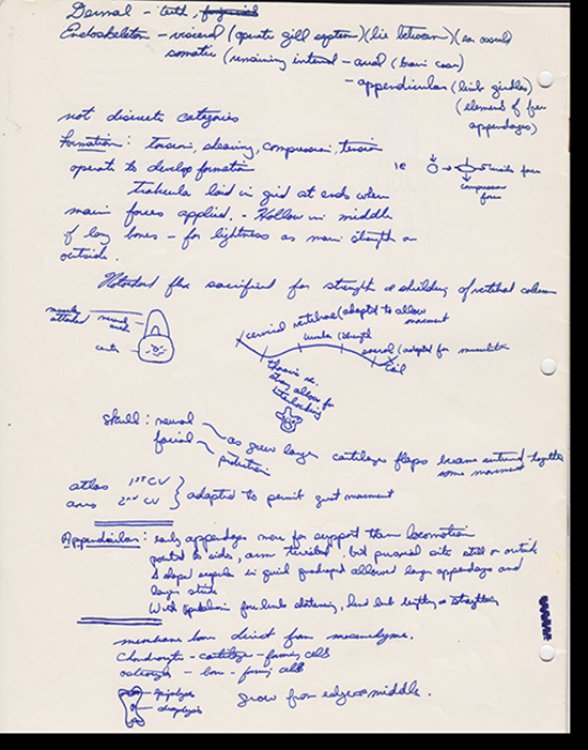 Dermal - teeth,
Endoskeleton - visceral (operate gill system) (lie between) (
somatic (remaining internal - axial (brain case)
- appendicular (limb girdles)
(elements of free
appendages)
not discrete categories
Formation: torsion, shearing, compression, tension
operate to develop formation
ie
force
compression
force
trabecula laid in grid at ends when
main forces applied. - Hollow in middle
of long bones - for lightness as main strength on
outside.
Notochord flex sacrificed for strength & shielding of vertebral column
muscles
attached
neural
arch
centra
cervical vertebrae (adapted to allow
movement
lumbar strength
sacral (adapted for
tail
thoracic ve.
strong allow for
interlocking
Skull: neural
facial
as grew larger cartilage flaps became sutured together
some movement
protection
atlas 1st CV
axis 2nd CV } adapted to permit great movement
Appendicular: early appendages more for support than locomotion
pointed to sides, arm twisted, but proximal
in quadruped allowed larger appendages and
larger stride
With fore limbs shortening, hind limb lengthen & straighten
membrane bone direct from mesenchyme.
Chondrocyte - cartilage - forming cells
- bone - forming cells
epiphysis
diaphysis
grow from edges & middle.